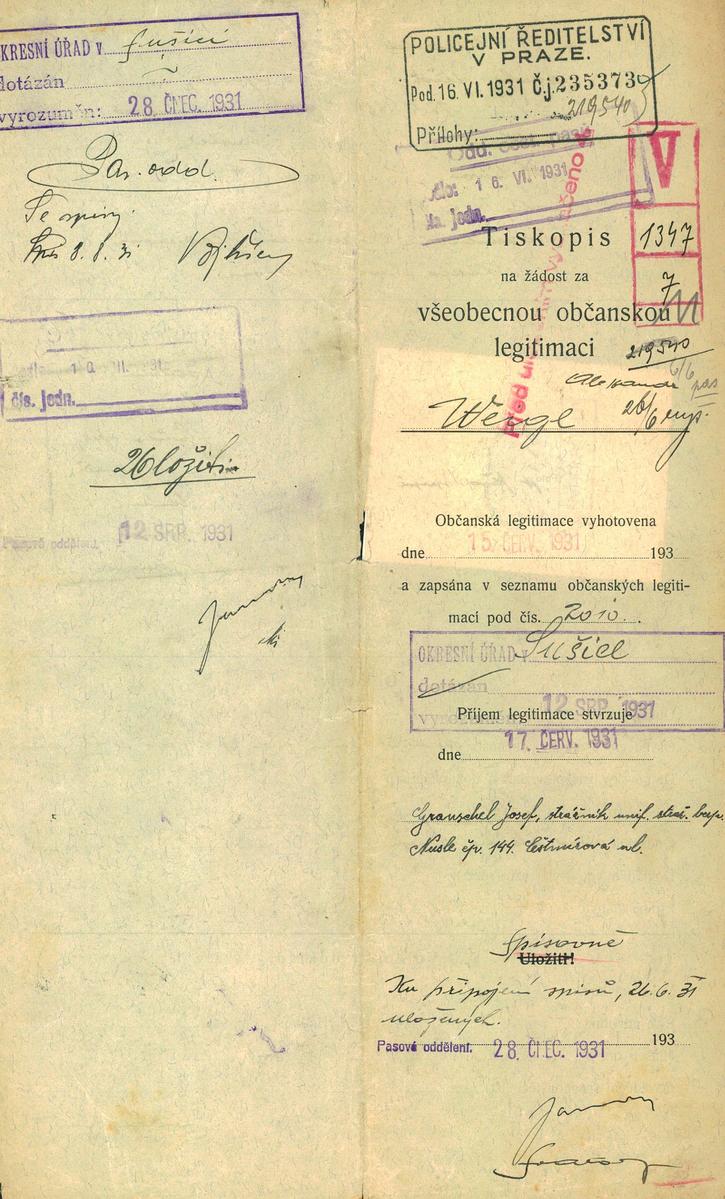 OKRESNÍ ÚŘAD v Sušici
dotázán
vyrozuměn: 28 ČNEC. 1931
Pas. odd.
Te spisy.
8. 8. 31
čís. jedn.
Uložiti
Pasové oddělení. 12 SRP. 1931
POLICEJNÍ ŘEDITELSTVÍ
V PRAZE.
Pod. 16. VI. 1931 Č.j. 235373
219540
Přílohy:
16. VI. 1931
čís. jedn.
V
1347
7
Tiskopis
na žádost za
všeobecnou občanskou
legitimaci
219540
Aleksandr
Wergl
26/6
Občanská legitimace vyhotovena
dne 15 ČERV. 1931 193
a zapsána v seznamu občanských legiti-
mací pod čís. 2010.
OKRESNÍ ÚŘAD v Sušici
dotázán
vyrozuměn: 12 SRP. 1931
Příjem legitimace stvrzuje
dne 17. ČERV. 1931
Granschel Josef, strážník unif. stráž. bezp.
Nusle čp. 144. Čestmírová ul.
Spisovně
Uložiti!
Ku připojení spisů, 26. 6. 31
uložených.
Pasové oddělení. 28. ČNEC. 1931 193